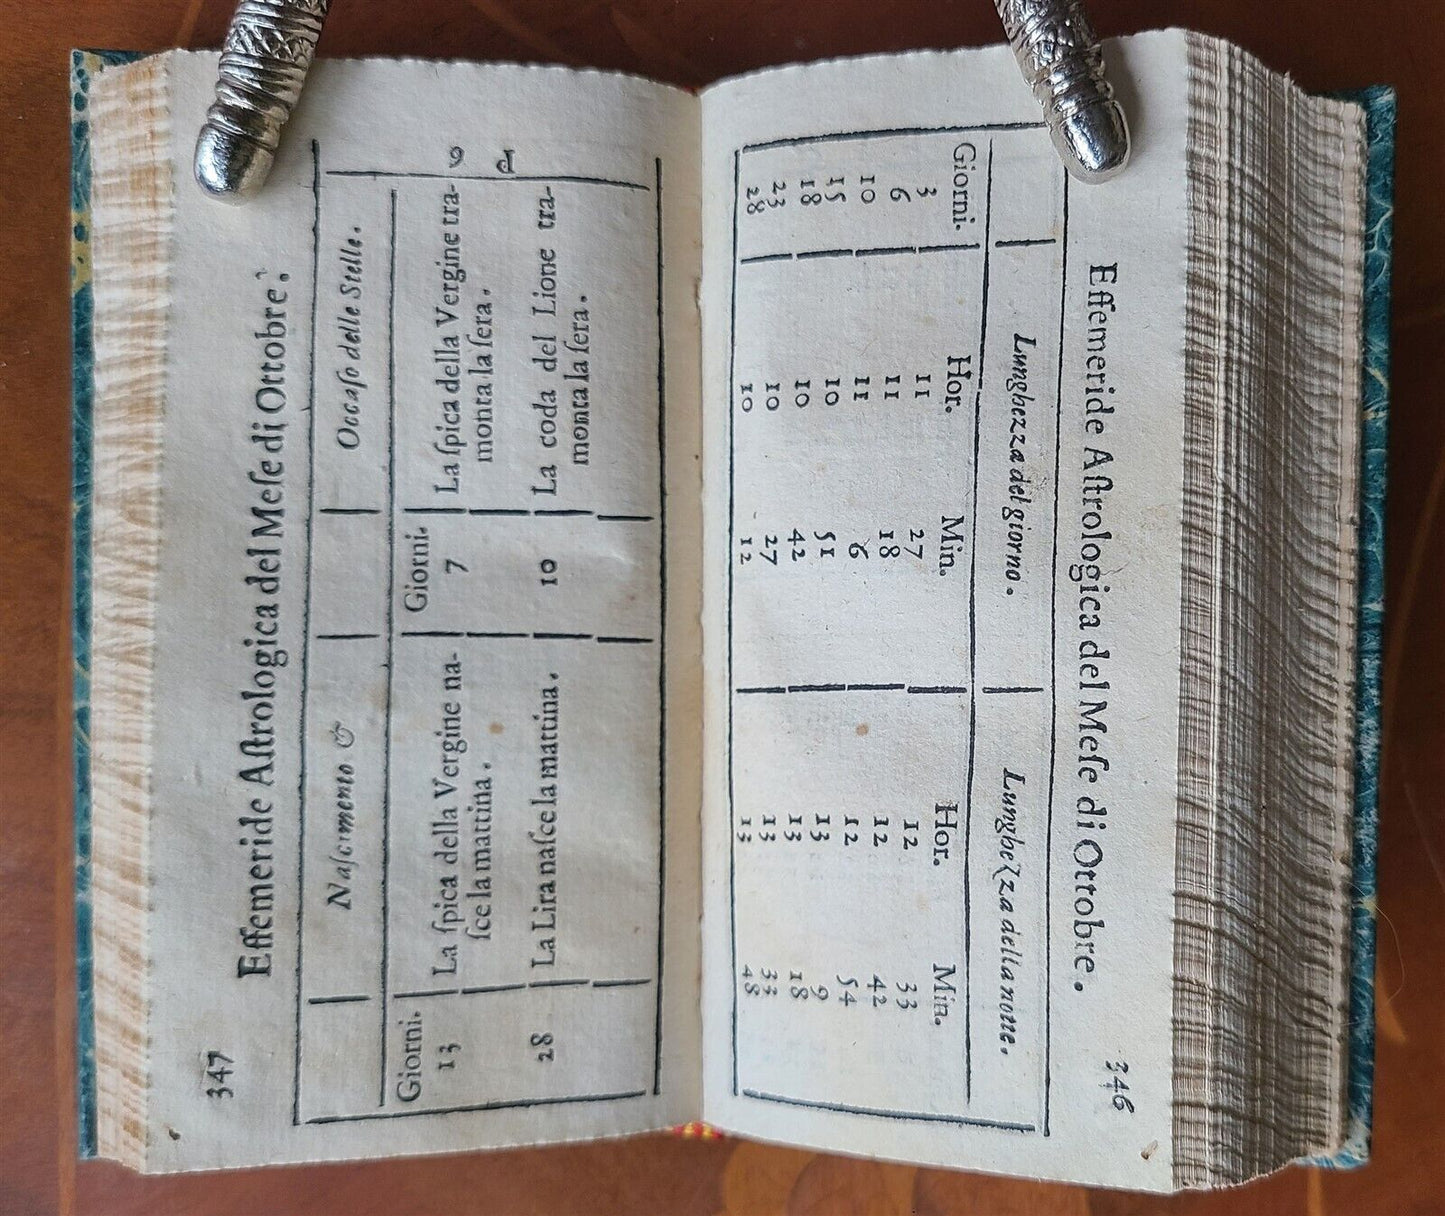 346
Effemeride Aſtrologica del Meſe di Ottobre.
Lunghezza del giorno. Lunghezza della notte.
Giorni. Hor. Min. Hor. Min.
3 11 27 12 33
6 11 18 12 42
10 11 6 12 54
15 10 51 13 9
18 10 42 13 18
23 10 27 13 33
28 10 12 13 48
347
Effemeride Aſtrologica del Meſe di Ottobre.
Naſcimento & Occaſo delle Stelle.
Giorni. Giorni.
13 La ſpica della Vergine na- 7 La ſpica della Vergine tra-
ſce la mattina. monta la ſera.
28 La Lira naſce la mattina. 10 La coda del Lione tra-
monta la ſera.